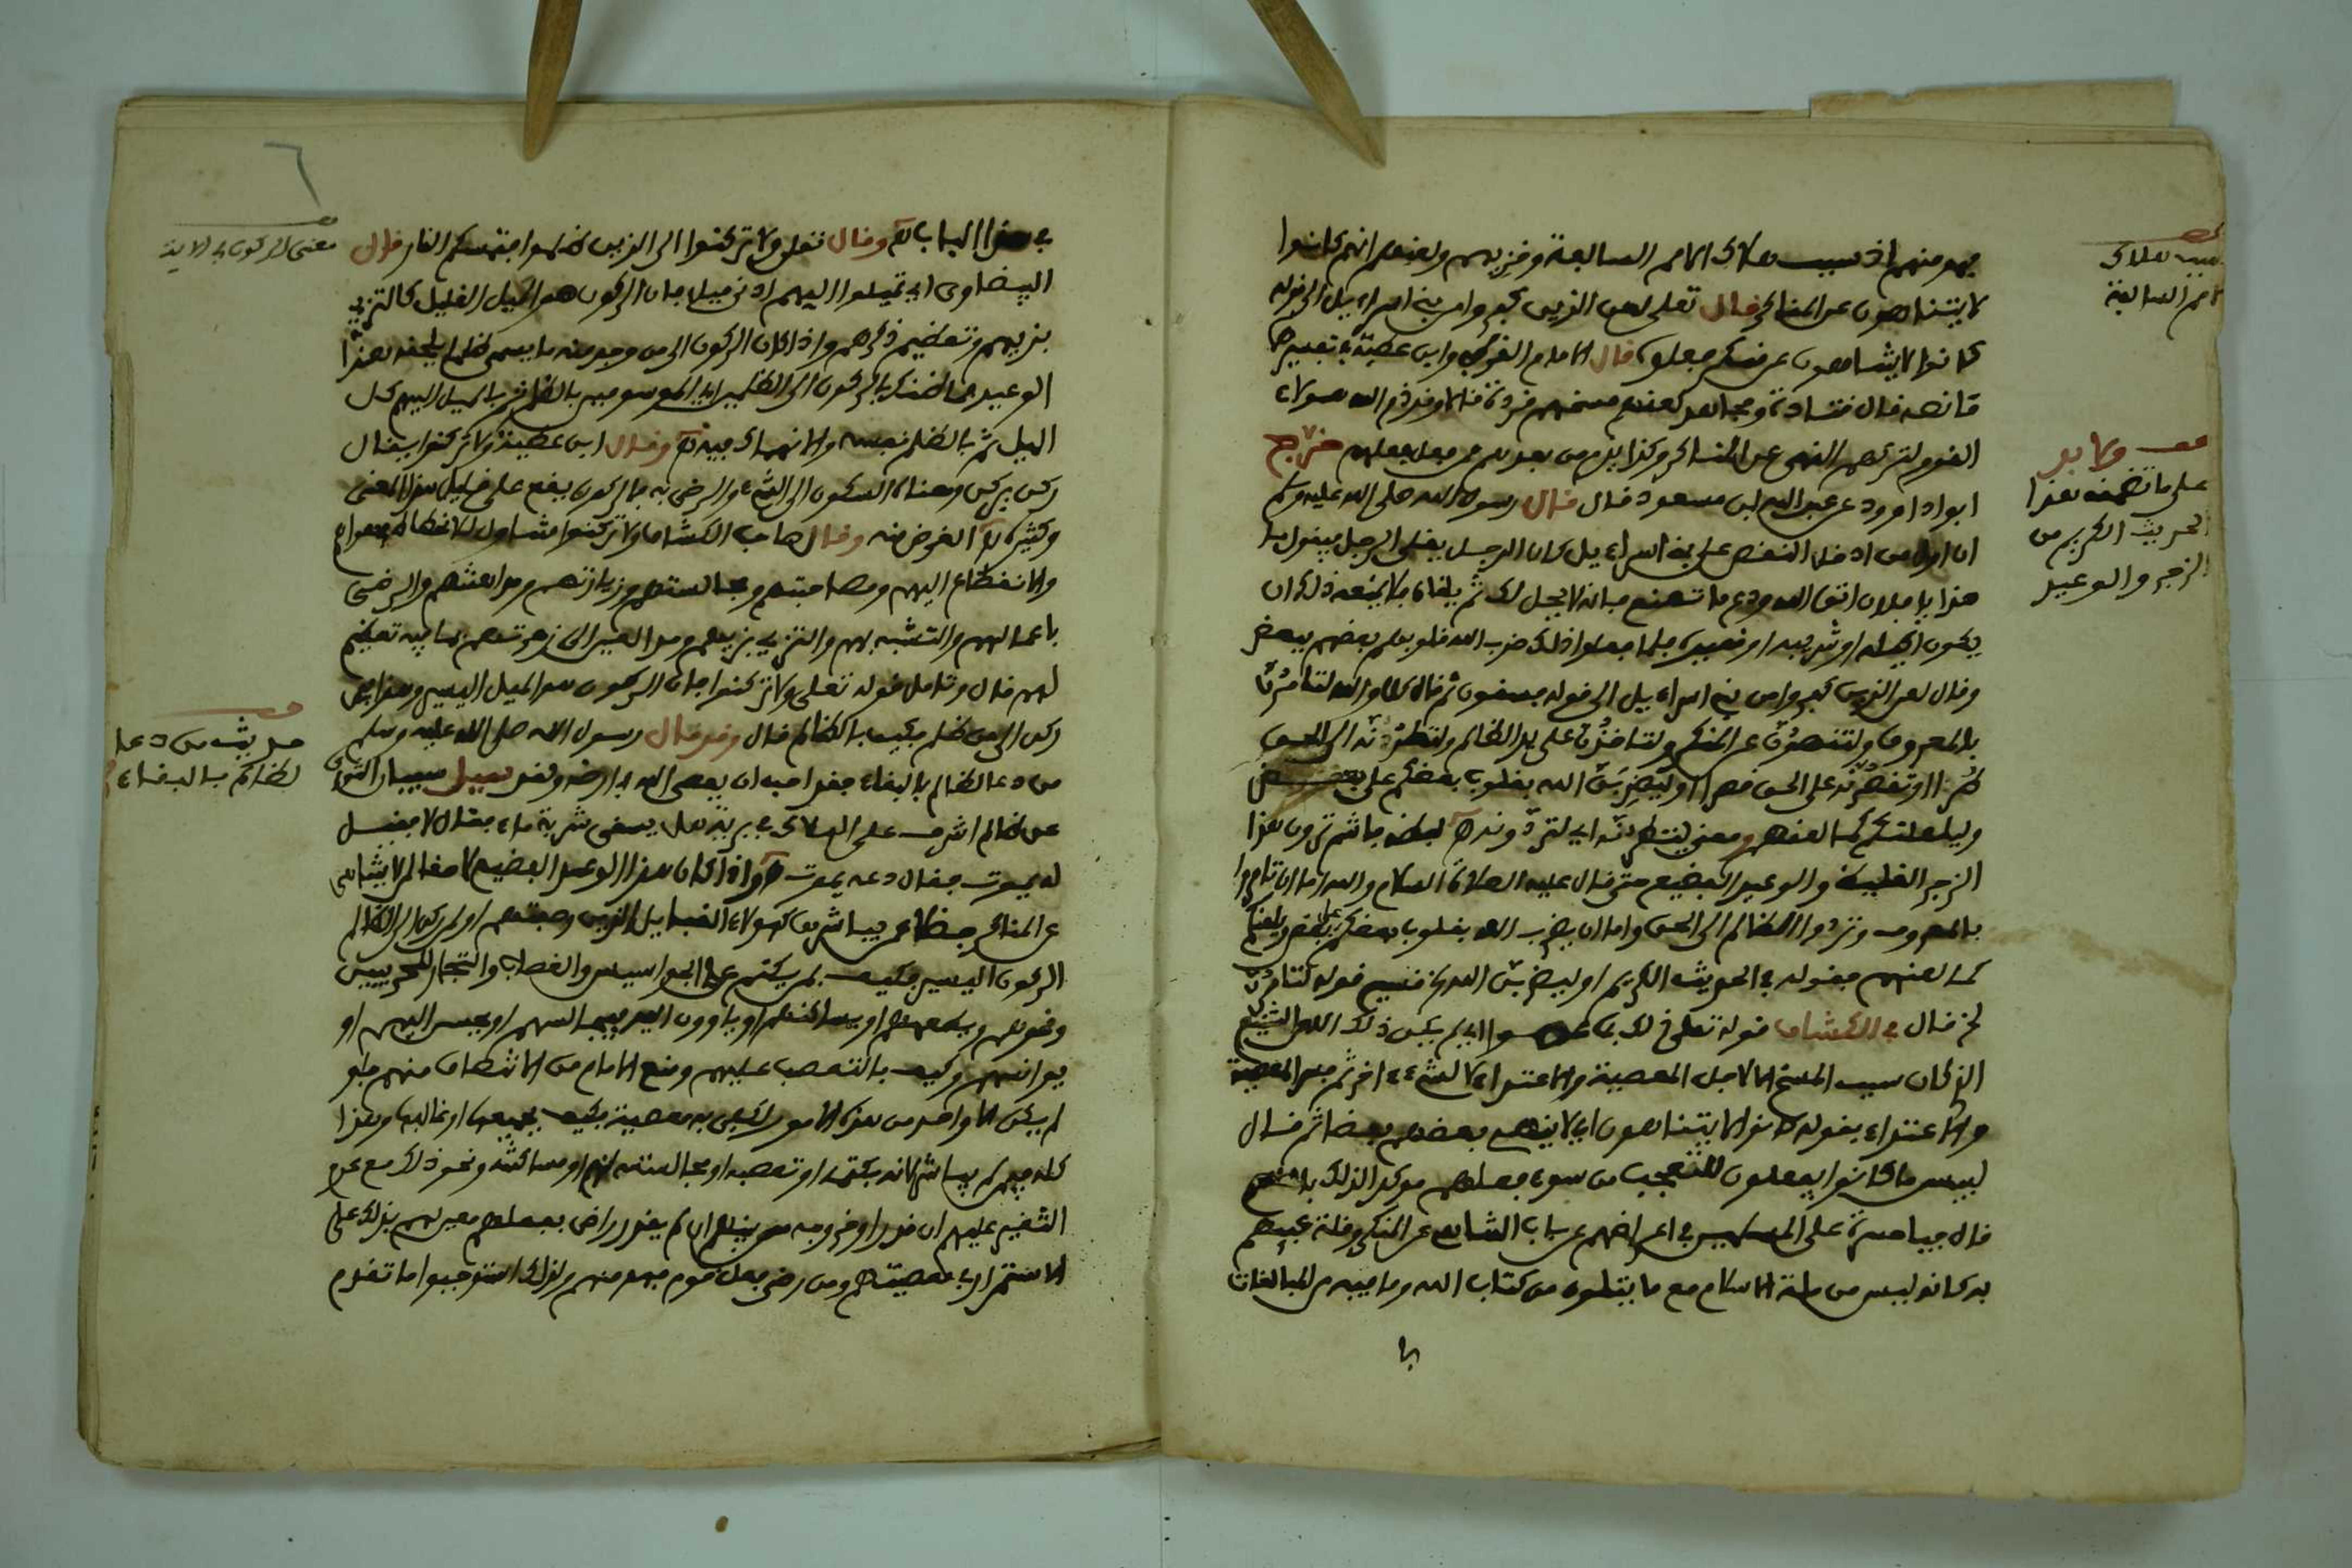 فهو منهم اذ سبب هلاك الامم السالفة وخزيهم ولعنهم انهم كانوا
لا يتناهون عن المناكر قال تعلى لعن الذين كفروا من بني اسراءيل الى قوله
كانوا لا يتناهون عن منكر فعلوه قال الامام الفخر وابن عطية في تفسيرها
ما نصه قال قتادة ومجاهد لعنهم مسخهم قردة قالا وقد ذم الله هؤلاء
القوم لتركهم النهي عن المناكر وكذا يذم من بعدهم من فعل فعلهم خرج
ابو داوود عن عبد الله ابن مسعود قال قال رسول الله صلى الله عليه وسلم
ان اول من ادخل النقص على بني اسراءيل كان الرجل يلقى الرجل فيقول يا
هذا يا فلان اتق الله ودع ما تصنع فانه لا يحل لك ثم يلقاه فلا يمنعه ذلك ان
يكون اكيله او شريبه او قعيده فلما فعلوا ذلك ضرب الله قلوب بعضهم ببعض
وقال لعن الذين كفروا من بني اسراءيل الى قوله فسقون ثم قال كلا والله لتامرن
بالمعروف ولتنهون عن المنكر ولتاخذن على يد الظالم ولتطرنه الى الحق
طرا او تقصرنه على الحق قصرا او ليضربن الله بقلوب بعضكم على بعض
وليلعنكم كما لعنهم ومعنى لتطرنه اي لتردونه بلطفه ما ثم ترون هذا
الزجر الغليظ والوعيد الفضيع حتى قال عليه الصلاة السلام والله اما ان تامروا
بالمعروف وتردوا الظالم الى الحق واما ان يضرب الله بقلوب بعضكم على بعض ويلعنكم
كما لعنهم فقوله في الحديث الكريم او ليضربن الله قسيم قوله لتامرن
ثم قال في الكشاف قوله تعلى ذلك بما عصوا اي لم يكن ذلك اللعن الشنيع
الذي كان سبب المسخ الا لاجل المعصية والاعتداء لا لشيء اخر ثم فسر المعصية
والاعتداء بقوله كانوا لا يتناهون اي لا ينهى بعضهم بعضا ثم قال
لبيس ما كانوا يفعلون للتعجب من سوء فعلهم موكدا لذلك بالقسم
قال فيا حسرة على المسلمين في اعراضهم عن باب التناهي عن المنكر وقلة عبئهم
به كانه ليس من ملة الاسلام مع ما يتلون من كتاب الله وما فيه من المبالغات
سبب هلاك
الامم السالفة
قف ولا بد
على ما تضمنه هذا
الحديث الكريم من
الزجر والوعيد
في
٦
في هذا الباب وقال تعلى ولا تركنوا الى الذين ظلموا فتمسكم النار قال
البيضاوي اي تميلوا اليهم ادنى ميل فان الركون هو الميل القليل كالتزيي
بزيهم وتعظيم ذكرهم واذا كان الركون الى من وجد منه ما يسمى ظلما يلحقه هذا
الوعيد فما ظنك بالركون الى الظلمين اي الموسومين بالظلم ثم بالميل اليهم كل
الميل ثم بالظلم نفسه والانهماك فيه وقال ابن عطية ولا تركنوا يقال
ركن يركن ومعناه السكون الى الشيء والرضى به فالركون يقع على قليل هذا المعنى
وكثيره الغرض منه وقال صاحب الكشاف ولا تركنوا متناول للانحطاط في هواهم
والانقطاع اليهم ومصاحبتهم ومجالستهم وزيارتهم ومداهنتهم والرضى
باعمالهم والتشبه بهم والتزيي بزيهم ومد العين الى زهرتهم بما فيه تعظيم
لهم قال وتامل قوله تعلى ولا تركنوا فان الركون هو الميل اليسير وهذا فيمن
ركن الى من ظلم فكيف بالظالم قال وقد قال رسول الله صلى الله عليه وسلم
من دعا لظالم بالبقاء فقد احب ان يعصى الله في ارضه ولقد سيل سفيان الثوري
عن ظالم اشرف على الهلاك في برية هل يسقى شربة ماء فقال لا فقيل
له يموت فقال دعه يموت واذا كان هذا الوعيد الفضيع لاحقا لمن لا يتناهى
عن المناكر فضلا عمن يباشرها كهؤلاء القبايل الذين وصفتهم او لمن ركن الى الظالم
الركون اليسير فكيف بمن يكتم على الجواسيس والغصاب والتجار للحربيين
ونحوهم وبايعهم او يساكنهم او ياوون اليه فيما لهم او يجلس اليهم او
يوانسهم وكيف بالتعصب عليهم ومنع الامام من الانتصاف منهم فلو
لم يكن الا واحد من هذه الامور لكفى به معصية فكيف بجميعها او غالبها وهذا
كله فيمن لم يباشر لكنه بكتمه او تعصبه او مجالسته لهم او مساكنته ونحو ذلك مع عدم
التغيير عليهم ان قدر او خروجه من بينهم ان لم يقدر راض بفعلهم معين لهم بذلك على
الاستمرار في معصيتهم ومن رضي فعل قوم فهو منهم ولذلك استوجبوا ما تقدم
معنى الركون في الاية
حديث من دعا
لظالم بالبقاء